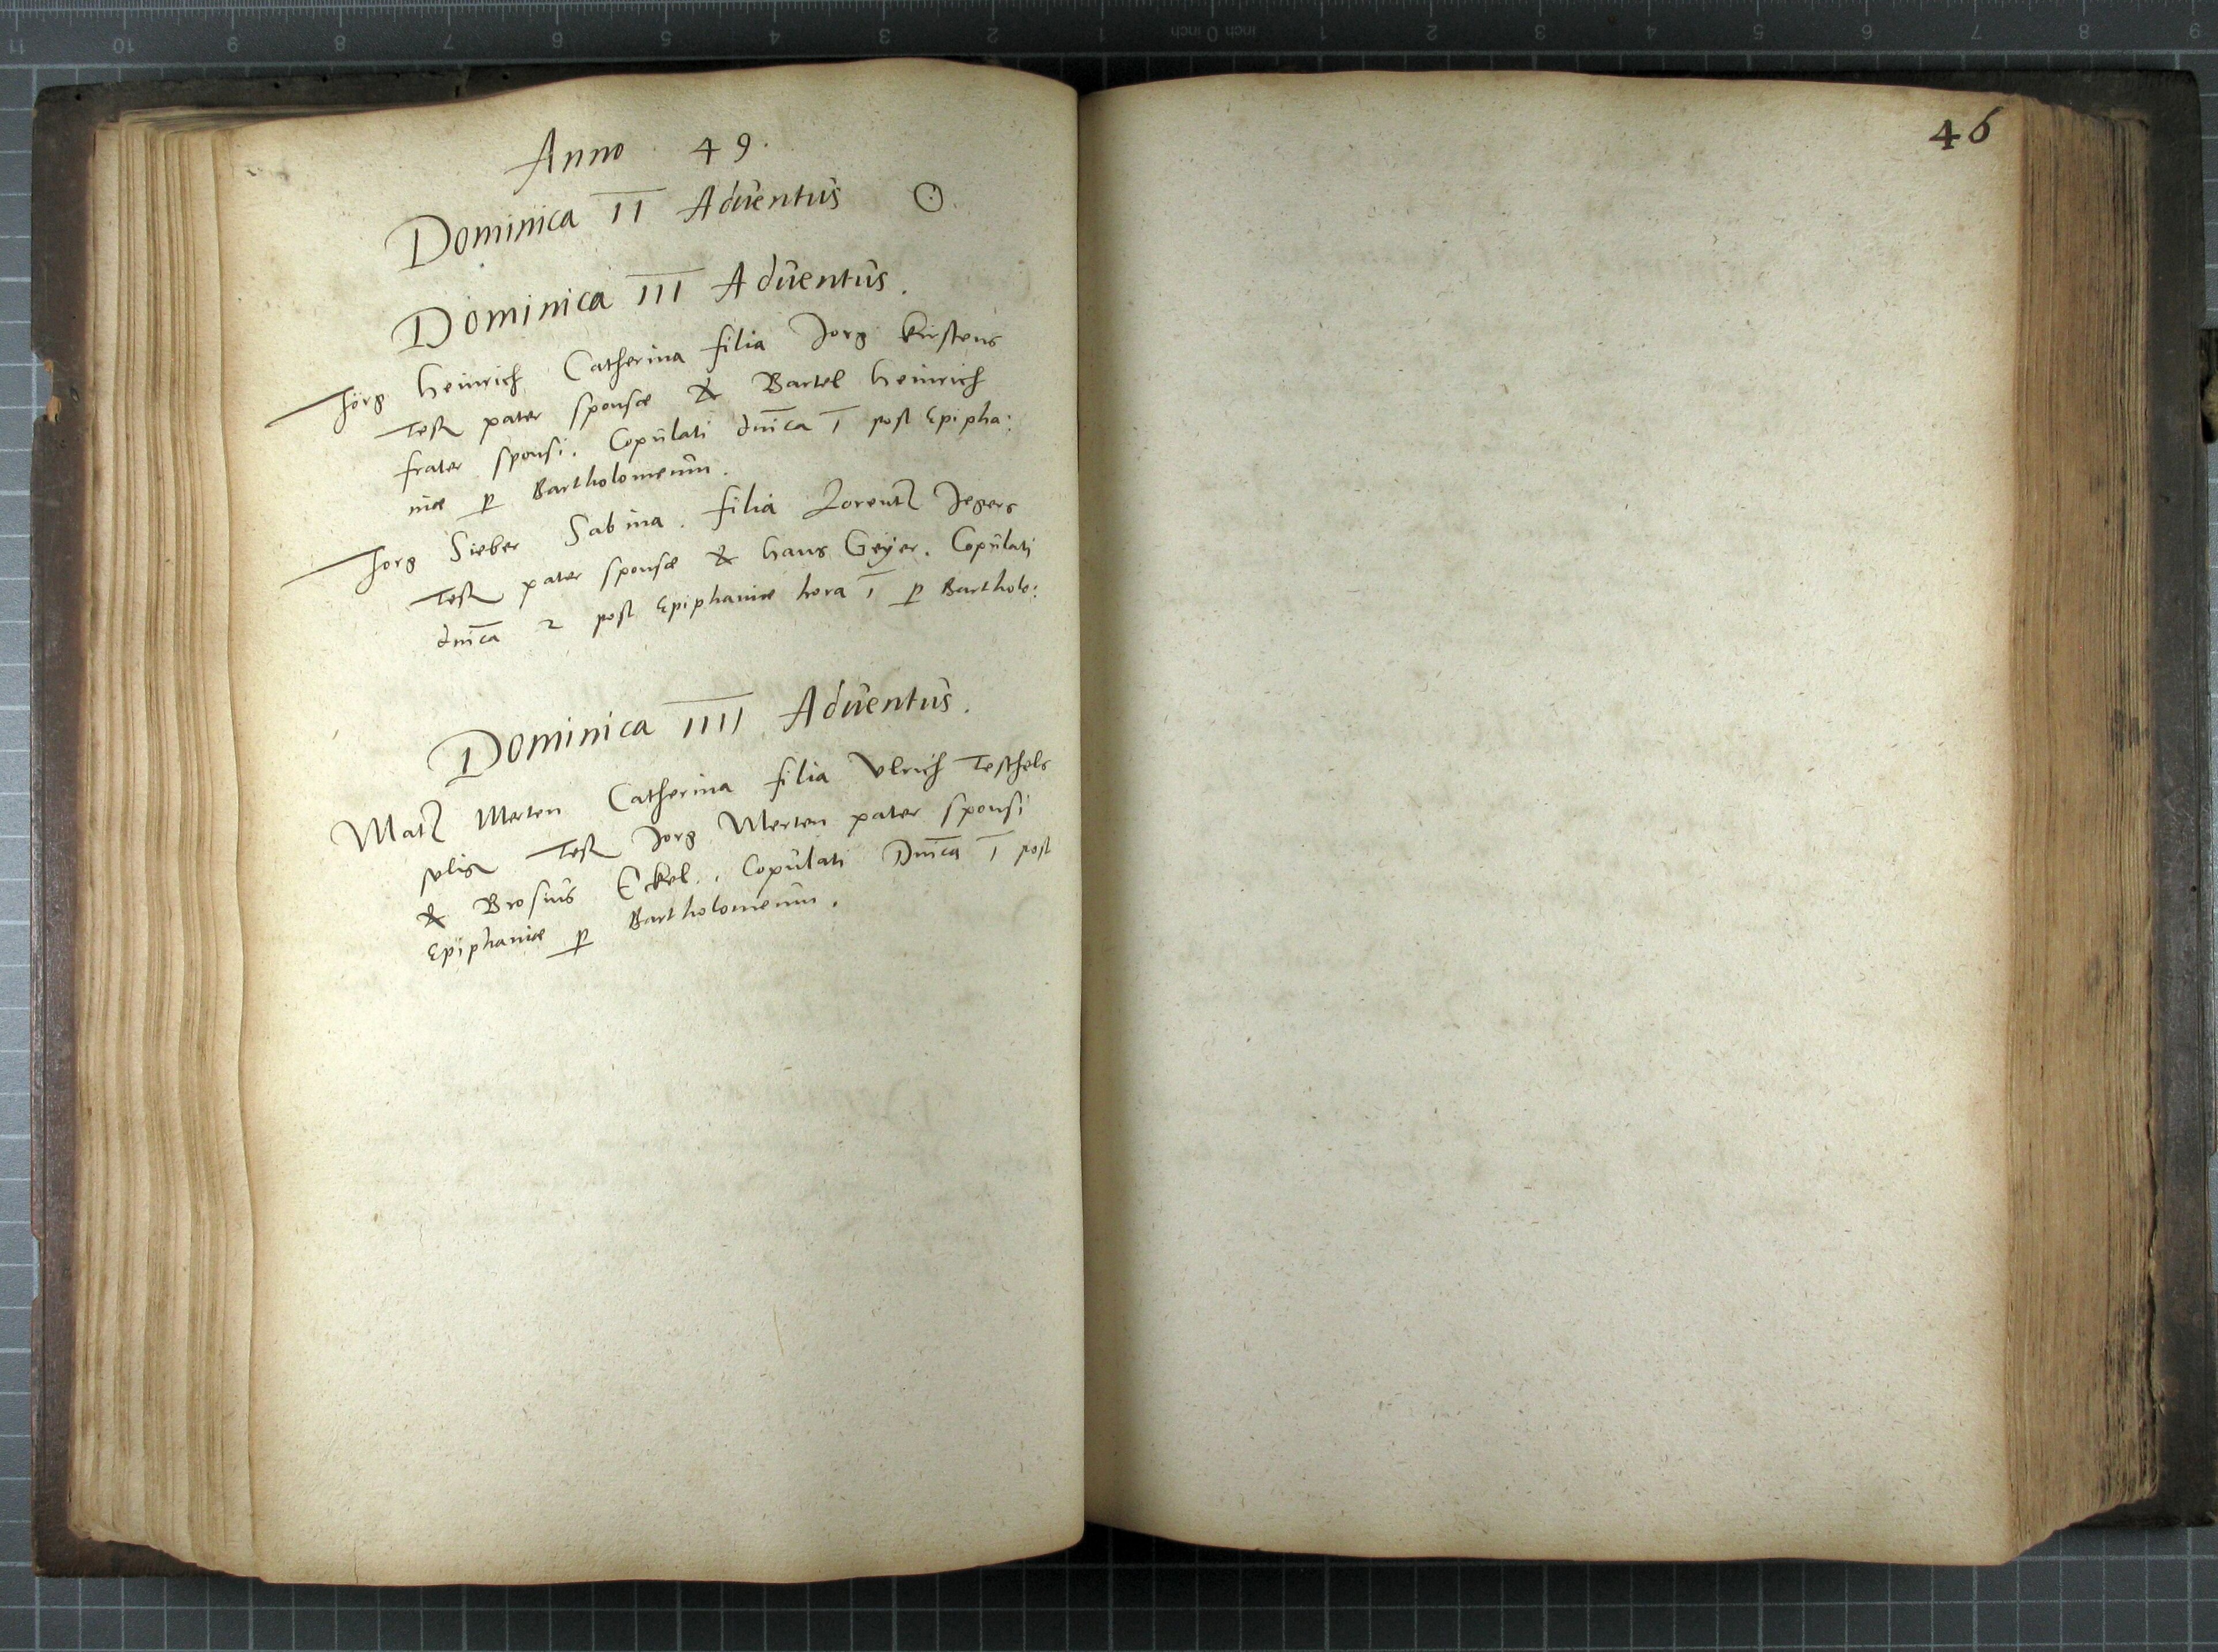 Anno 49.
Dominica II Adventus ⊙.
Dominica III Adventus.
Jorg Heinrich Catherina filia Jorg Kirstens
Test pater sponsæ & Bartel Heinrich
frater sponsi. Copulati dnica I post Epipha:
niæ p Bartholomeum.
Jorg Sieber Sabina. filia Lorentz Jegers
Test pater sponsæ & Hans Geÿer. Copulati
dnica 2 post Epiphaniæ hora I p Bartholo:
Dominica IIII Adventus.
Matz Merten Catherina filia Vlrich Teschels
Test Jorg Merten pater sponsi
& Brosius Eckel. Copulati Dnica I post
Epiphaniæ p Bartholomeum.
46